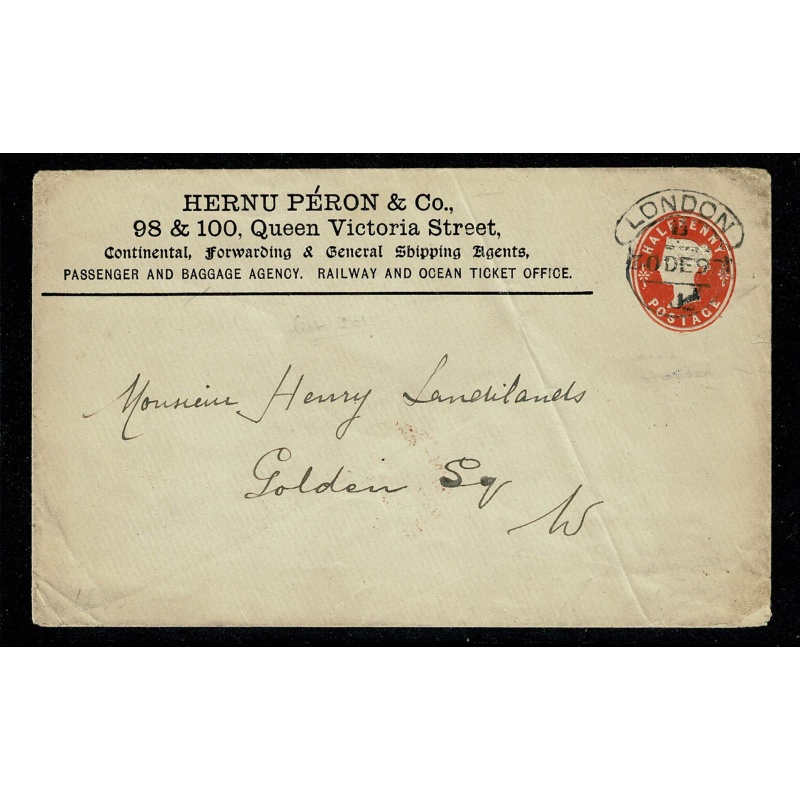 HERNU PÉRON & Co.,
98 & 100, Queen Victoria Street,
Continental, Forwarding & General Shipping Agents,
PASSENGER AND BAGGAGE AGENCY. RAILWAY AND OCEAN TICKET OFFICE.
LONDON
HALFPENNY
DE 9
POSTAGE
Monsieur Henry Sandilands
Golden Sq
W